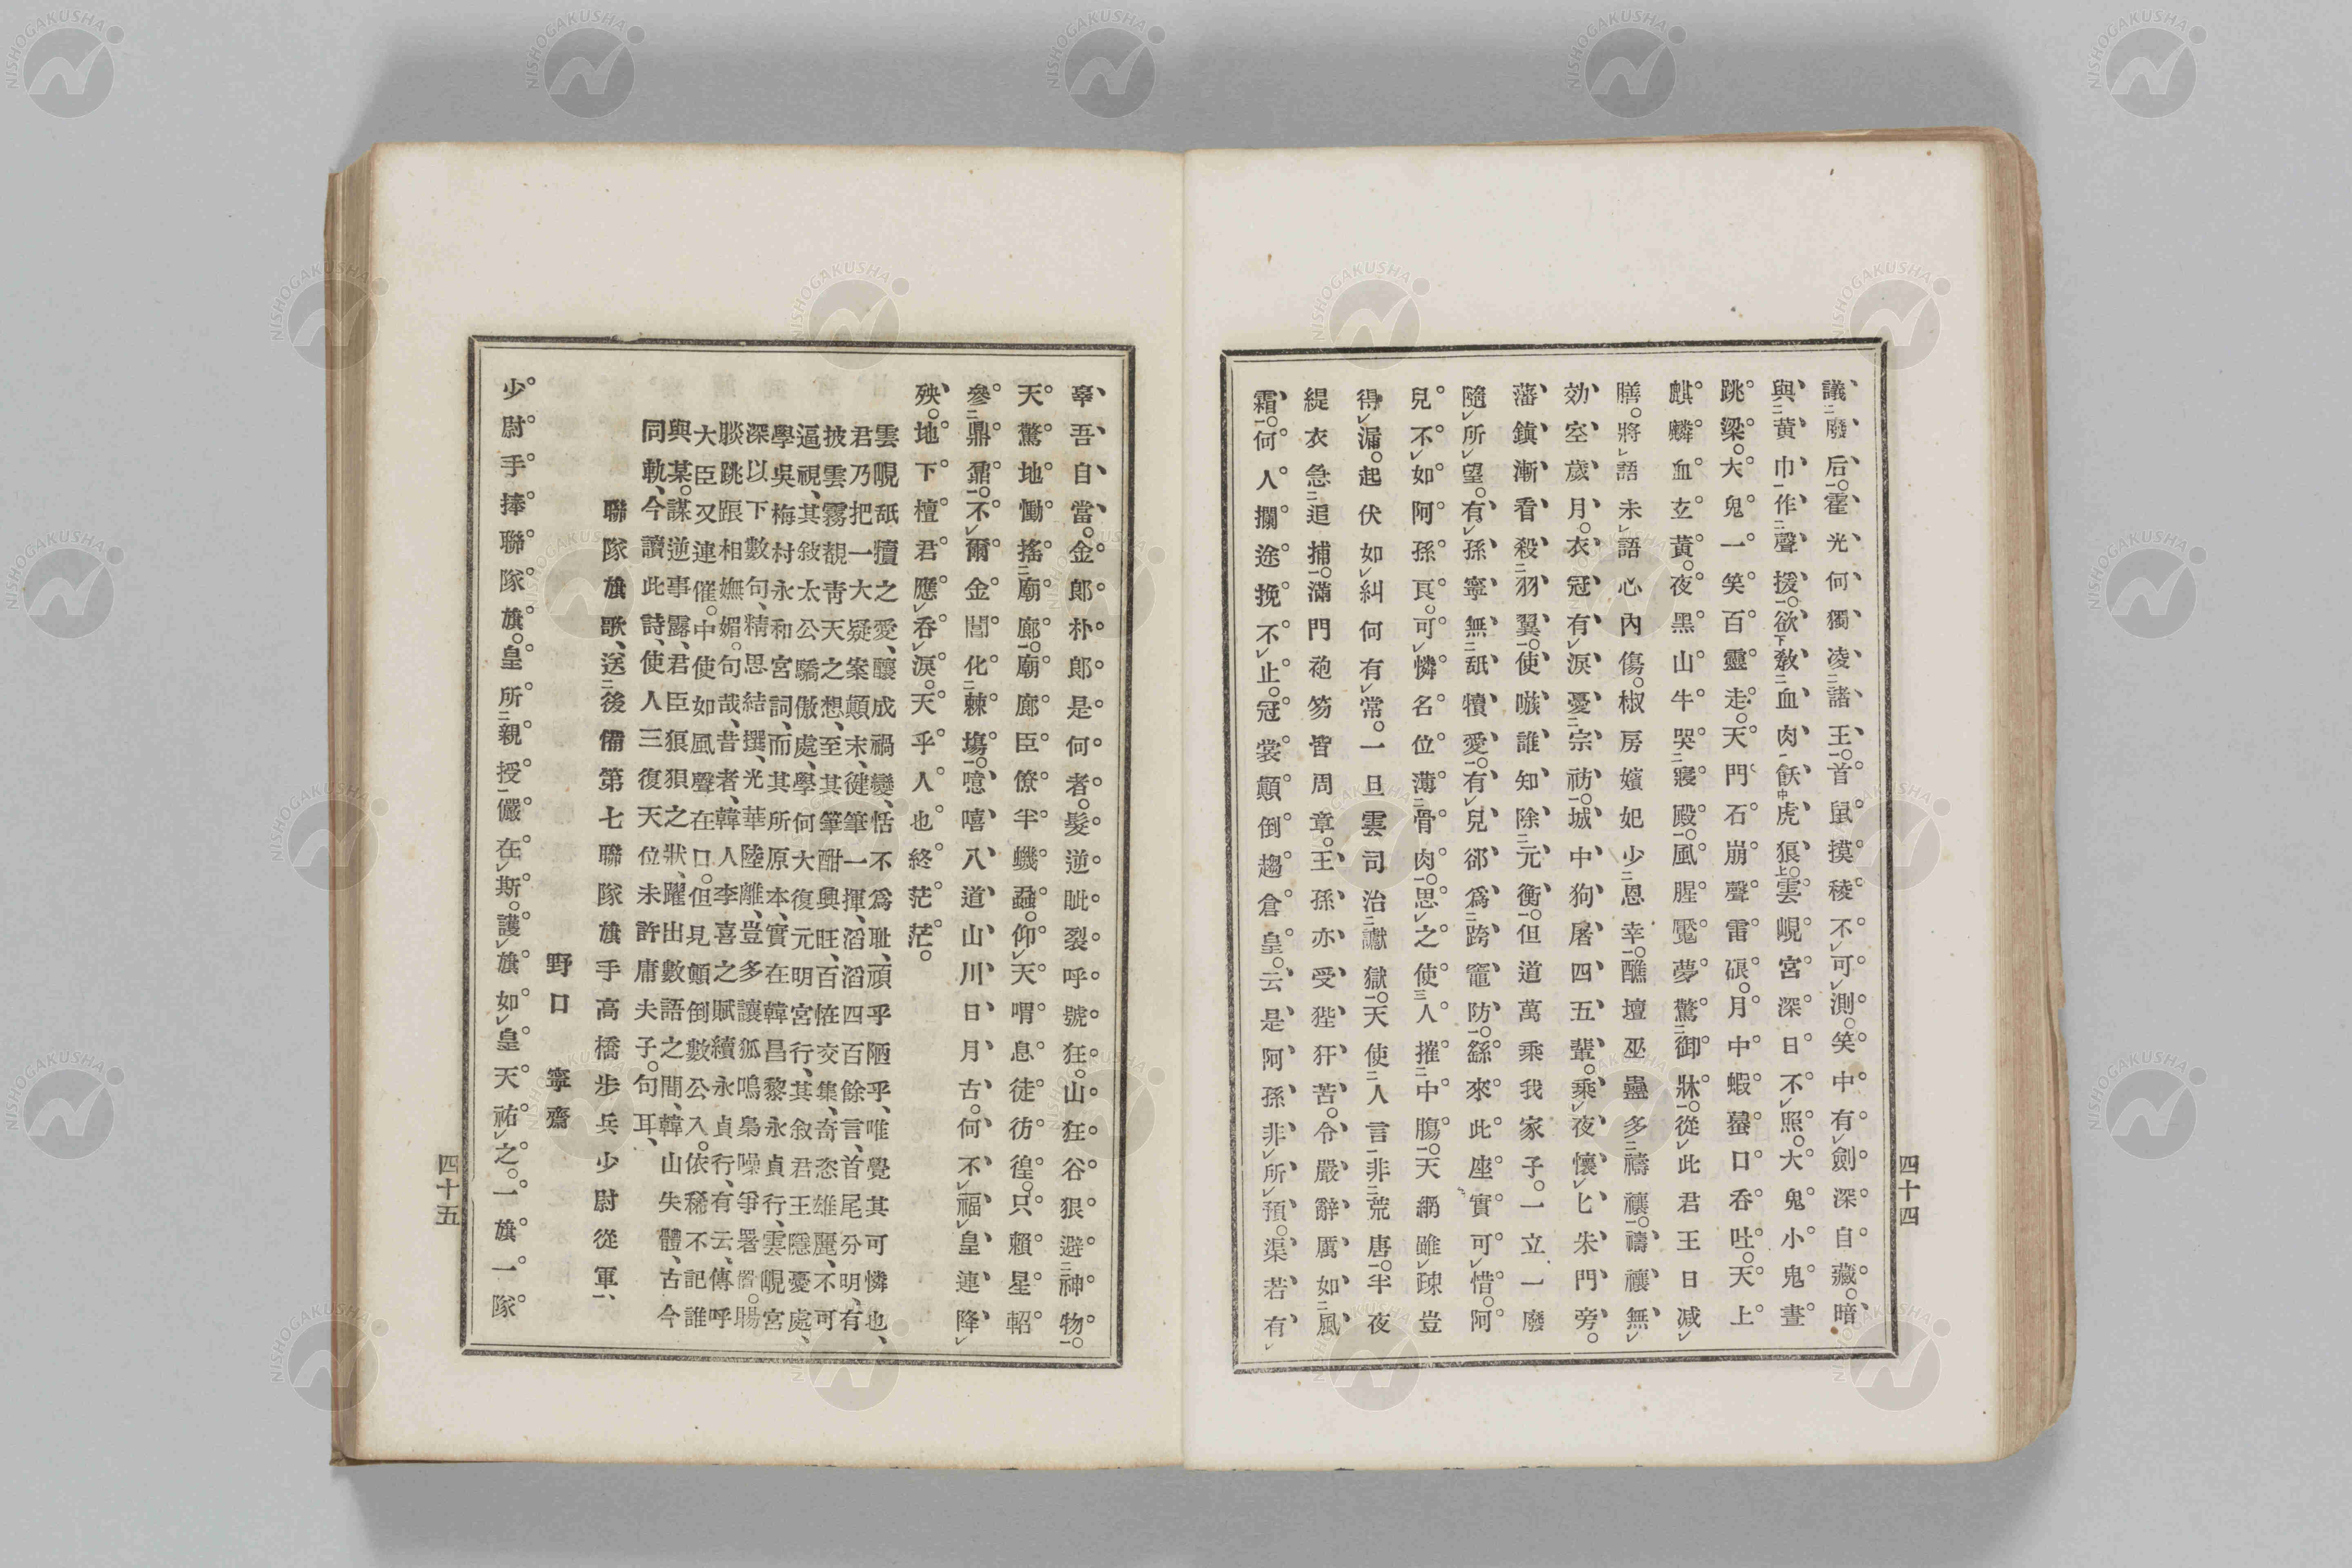 議廢后。霍光何獨凌諸王。首鼠摸稜不可測。笑中有劍深自藏。暗
與黃巾作聲援。欲敎血肉飫虎狼。雲峴宮深日不照。大鬼小鬼晝
跳梁。大鬼一笑百靈走。天門石崩聲雷硠。月中蝦蟇口呑吐。天上
麒麟血玄黃。夜黑山牛哭寢殿。風腥魘夢驚御牀。從此君王日減
膳。將語未語心內傷。椒房嬪妃少恩幸。醮壇巫蠱多禱禳。禱禳無
効空歲月。衣冠有淚憂宗祊。城中狗屠四五輩。乘夜懷匕朱門旁。
藩鎮漸看殺羽翼。使嗾誰知除元衡。但道萬乘我家子。一立一廢
隨所望。有孫寧無舐犢愛。有兒郤爲跨竈防。繇來此座實可惜。阿
兒不如阿孫良。可憐名位薄骨肉。思之使人摧中膓。天網雖疎豈
得漏。起伏如糾何有常。一旦雲司治讞獄。天使人言非荒唐。半夜
緹衣急追捕。滿門袍笏皆周章。王孫亦受狴犴苦。令嚴辭厲如風
霜。何人攔途挽不止。冠裳顚倒趨倉皇。云是阿孫非所預。渠若有
四十四
辜吾自當。金郞朴郞是何者。髮逆眦裂呼號狂。山狂谷狠避神物。
天驚地慟搖廟廊。廟廊臣僚半蟣蝨。仰天喟息徒彷徨。只賴星軺
參鼎鼐。不爾金閶化棘塲。噫嘻八道山川日月古。何不福皇連降
殃。地下檀君應呑淚。天乎人也終茫茫。
雲峴舐犢之愛、釀成禍變、恬不爲耻、頑乎陋乎、唯覺其可憐也、
君乃把一大疑案顚末、健筆一揮、滔滔四百餘言、首尾分明、有
披雲霧覩靑天之想、至其筆酣興旺、百恠交集、奇恣雄麗、不可
逼視、其敍太公驕傲處、學何大復元明宮行、其敘君王隱憂處、
學吳梅村永和宮詞、而其所原本、實在韓昌黎永貞行、雲峴宮
深以下數句、精思結撰、光華陸離、豈多讓狐鳴梟噪爭署置。賜
睒跳踉相嫵媚。句哉、昔者、韓人李喜之賦續永貞行、有云、傳呼
大臣又連催。中使如風聲在口。但見顚倒數公入。依稀不記誰
與某。謀逆事露、君臣狼狽之狀、躍出數語之間、韓山失體、古今
同軌、今讀此詩、使人三復天位未許庸夫子。句耳、
聯隊旗歌、送後備第七聯隊旗手高橋步兵少尉從軍、
野口寧齋
少尉手捧聯隊旗。皇所親授儼在斯。護旗如皇天祐之。一旗一隊
四十五